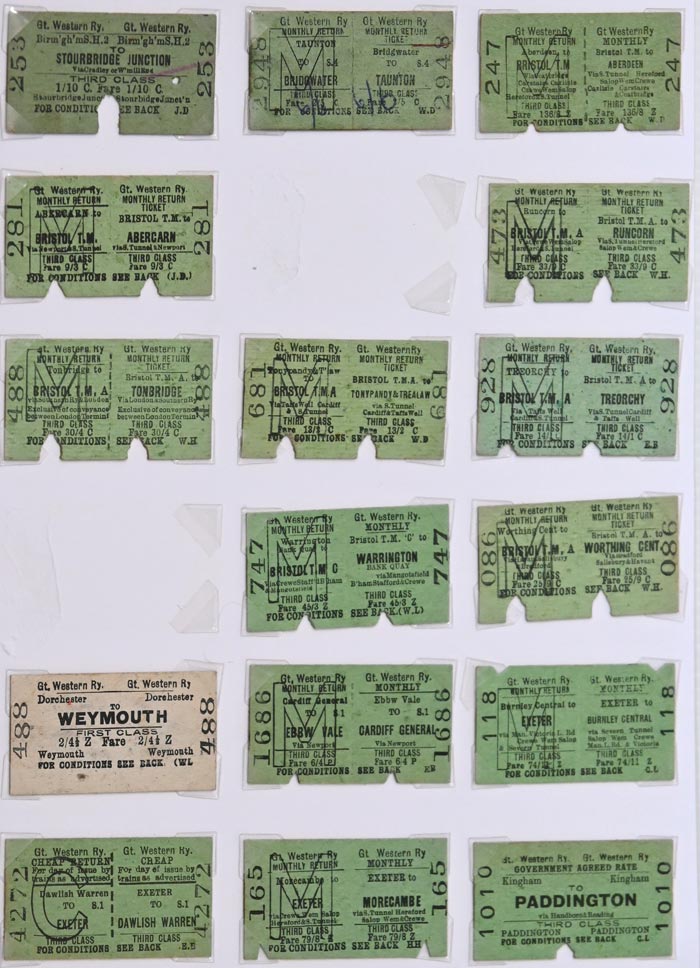 253
Gt. Western Ry Gt. Western Ry
Birm'gh'm S.H.2 Birm'gh'm S.H.2
TO
STOURBRIDGE JUNCTION
THIRD CLASS
1/10 C. Fare 1/10 C.
FOR CONDITIONS SEE BACK J.D
253
2948
Gt. Western Ry Gt. Western Ry
MONTHLY RETURN MONTHLY RETURN
TICKET
TAUNTON Bridgwater
TO S.4 TO S.4
BRIDGWATER TAUNTON
THIRD CLASS THIRD CLASS
FOR CONDITIONS SEE BACK W.D
2948
247
Gt. Western Ry Gt. Western Ry
MONTHLY RETURN MONTHLY
Aberdeen, to Bristol T.M to
BRISTOL T.M ABERDEEN
THIRD CLASS THIRD CLASS
Fare 136/8 Z Fare 136/8 Z
FOR CONDITIONS SEE BACK W.D
247
281
Gt. Western Ry. Gt. Western Ry.
MONTHLY RETURN MONTHLY RETURN
TICKET
ABERCARN to BRISTOL T.M. to
BRISTOL T.M. ABERCARN
Via Newport & S. Tunnel Via S. Tunnel & Newport
THIRD CLASS THIRD CLASS
Fare 9/3 C Fare 9/3 C
FOR CONDITIONS SEE BACK (J.D.)
281
473
Gt. Western Ry Gt. Western Ry
MONTHLY RETURN MONTHLY RETURN
TICKET
Runcorn to Bristol T.M. A. to
BRISTOL T.M. A RUNCORN
THIRD CLASS THIRD CLASS
Fare 33/9 C Fare 33/9 C
FOR CONDITIONS SEE BACK W.H.
473
488
Gt. Western Ry Gt. Western Ry
MONTHLY RETURN MONTHLY RETURN
TICKET
Tonbridge to Bristol T.M. A. to
BRISTOL T.M. A TONBRIDGE
Exclusive of conveyance Exclusive of conveyance
between London Termini between London Termini
THIRD CLASS THIRD CLASS
Fare 30/4 C Fare 30/4 C
FOR CONDITIONS SEE BACK W.H
488
681
Gt. Western Ry Gt. Western Ry.
MONTHLY RETURN MONTHLY RETURN
TICKET
Tonypandy & T'law BRISTOL T.M.A. to
TO
BRISTOL T.M.A TONYPANDY & TREALAW
via Taffs Well Cardiff via S. Tunnel
& S. Tunnel Cardiff & Taffs Well
THIRD CLASS THIRD CLASS
Fare 13/2 C Fare 13/2 C
FOR CONDITIONS SEE BACK W.D
681
928
Gt. Western Ry Gt. Western Ry.
MONTHLY RETURN MONTHLY RETURN
TICKET
TREORCHY to Bristol T.M. A. to
BRISTOL T.M. A TREORCHY
via Taffs Well via S. Tunnel Cardiff
& Taffs Well
THIRD CLASS THIRD CLASS
Fare 14/1 C Fare 14/1 C
FOR CONDITIONS SEE BACK E.B
928
747
Gt. Western Ry Gt. Western Ry.
MONTHLY RETURN MONTHLY
Warrington Bristol T.M. 'C' to
Bank Quay to WARRINGTON
BRISTOL T.M C BANK QUAY
via Mangotsfield
B'ham Stafford & Crewe
THIRD CLASS THIRD CLASS
Fare 45/3 Z Fare 45/3 Z
FOR CONDITIONS SEE BACK.(W.L)
747
086
Gt. Western Ry Gt. Western Ry.
MONTHLY RETURN MONTHLY RETURN
TICKET
Worthing Cent to Bristol T.M. A. to
BRISTOL T.M. A WORTHING CENT.
THIRD CLASS THIRD CLASS
Fare 25/9 C Fare 25/9 C
FOR CONDITIONS SEE BACK W.H.
086
488
Gt. Western Ry. Gt. Western Ry.
Dorchester Dorchester
TO
WEYMOUTH
FIRST CLASS
2/4½ Z Fare 2/4½ Z
Weymouth Weymouth
FOR CONDITIONS SEE BACK (W.L
488
1686
Gt. Western Ry Gt. Western Ry.
MONTHLY RETURN MONTHLY
Cardiff General Ebbw Vale
TO S.1 TO S.1
EBBW VALE CARDIFF GENERAL
Via Newport Via Newport
THIRD CLASS THIRD CLASS
Fare 6/4 P Fare 6/4 P
FOR CONDITIONS SEE BACK
1686
118
Gt. Western Ry Gt. Western Ry.
MONTHLY RETURN MONTHLY
Burnley Central to EXETER to
EXETER BURNLEY CENTRAL
THIRD CLASS THIRD CLASS
Fare 74/11 Z Fare 74/11 Z
FOR CONDITIONS SEE BACK C.L
118
4272
Gt. Western Ry. Gt. Western Ry.
CHEAP RETURN CHEAP
For day of issue by For day of issue by
trains as advertised trains as advertised
Dawlish Warren EXETER
TO S.1 TO S.1
EXETER DAWLISH WARREN
THIRD CLASS THIRD CLASS
FOR CONDITIONS SEE BACK
4272
165
Gt. Western Ry Gt. Western Ry.
MONTHLY RETURN MONTHLY
Morecambe to EXETER to
EXETER MORECAMBE
via S. Tunnel Hereford
Salop Wem & Crewe
THIRD CLASS THIRD CLASS
Fare 79/8 Z Fare 79/8 Z
FOR CONDITIONS SEE BACK HH
165
1010
Gt. Western Ry Gt. Western Ry.
GOVERNMENT AGREED RATE
Kingham Kingham
TO
PADDINGTON
via Handboro & Reading
THIRD CLASS
PADDINGTON PADDINGTON
FOR CONDITIONS SEE BACK C.L
1010